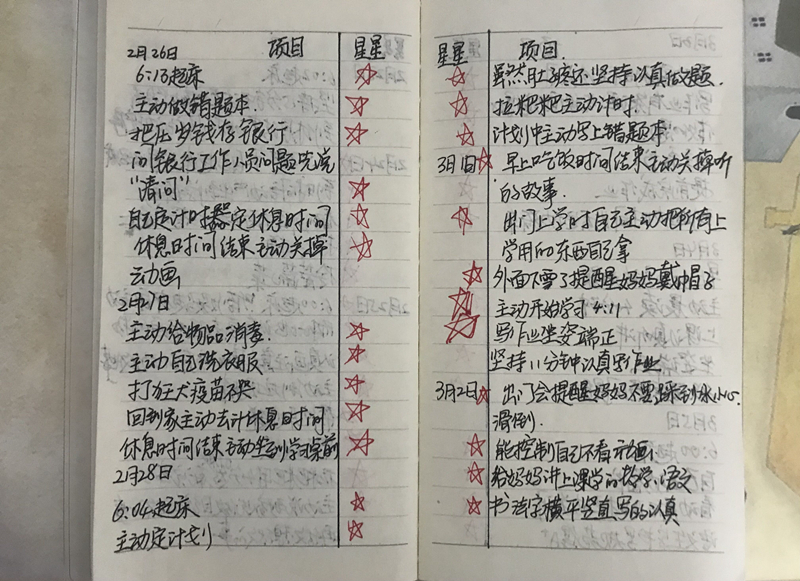 2月26日 项目 星星
6:13起床
主动做错题本.
把压岁钱存银行
问银行工作人员问题先说
"请问"
自己定计时器定休息时间
休息时间结束主动关掉
动画
2月27日
主动给物品消毒.
主动自己洗衣服
打狂犬疫苗不哭
回到家主动去计休息时间
休息时间结束主动坐到学习桌前
2月28日
6:04起床
主动定计划
星星 项目.
虽然肚子疼还坚持认真做题.
拉粑粑主动计时.
计划中主动写上错题本
3月1日 早上吃饭时间结束主动关掉听
的故事.
出门上学时自己主动把所有上
学用的东西自己拿
外面下雪了提醒妈妈戴帽子
主动开始学习4:11
写作业坐姿端正
坚持11分钟认真写作业
3月2日 出门会提醒妈妈不要踩到冰小心
滑倒.
能控制自己不看动画
给妈妈讲上课学的数学、语文
书法字横平竖直写的认真